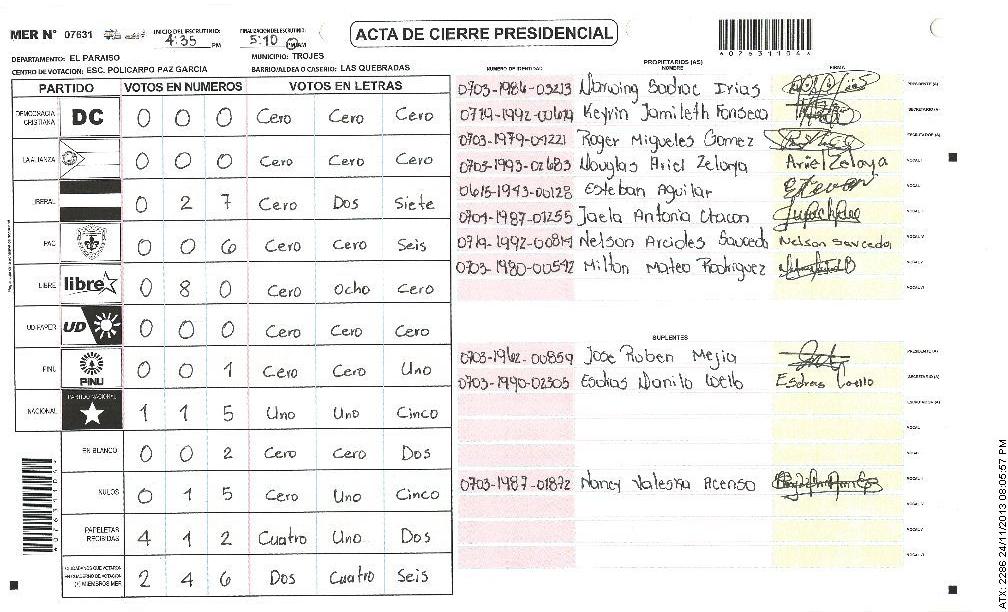 MER N° 07631 INICIO DEL ESCRUTINIO: 4:35 PM FINALIZACION DEL ESCRUTINIO: 5:10 PM
ACTA DE CIERRE PRESIDENCIAL
DEPARTAMENTO: EL PARAISO MUNICIPIO: TROJES
CENTRO DE VOTACION: ESC. POLICARPO PAZ GARCIA BARRIO/ALDEA O CASERIO: LAS QUEBRADAS
PARTIDO VOTOS EN NUMEROS VOTOS EN LETRAS
DEMOCRACIA CRISTIANA DC 0 0 0 Cero Cero Cero
LA ALIANZA 0 0 0 Cero Cero Cero
LIBERAL 0 2 7 Cero Dos Siete
PAC 0 0 6 Cero Cero Seis
LIBRE libre 0 8 0 Cero Ocho Cero
UD FAPER UD 0 0 0 Cero Cero Cero
PINU PINU 0 0 1 Cero Cero Uno
NACIONAL PARTIDO NACIONAL 1 1 5 Uno Uno Cinco
EN BLANCO 0 0 2 Cero Cero Dos
NULOS 0 1 5 Cero Uno Cinco
PAPELETAS RECIBIDAS 4 1 2 Cuatro Uno Dos
CIUDADANOS QUE VOTARON EN CUADERNO DE VOTACION (+) MIEMBROS MER 2 4 6 Dos Cuatro Seis
PROPIETARIOS (AS)
NUMERO DE IDENTIDAD NOMBRE FIRMA
0703-1986-03213 Irias PRESIDENTE (A)
0719-1992-00619 Keyrin Jamileth Fonseca SECRETARIO (A)
0703-1979-01221 Roger Migueles Gomez ESCRUTADOR (A)
0703-1993-02683 Douglas Ariel Zelaya Ariel Zelaya VOCAL I
0615-1943-00128 Esteban Aguilar
0704-1987-01255 Jaela Antonia Chacon
0719-1992-00819 Nelson Arcides Sauceda Nelson Sauceda
0703-1980-00542 Milton Mateo Rodriguez
SUPLENTES
0703-1962-00859 Jose Ruben Mejia PRESIDENTE (A)
0703-1990-02305 Esdras Danilo Coello Esdras Coello SECRETARIO (A)
ESCRUTADOR (A)
0703-1987-01872 Nancy Valeska Acenso
ATX: 2286 24/11/2013 08:05:57 PM